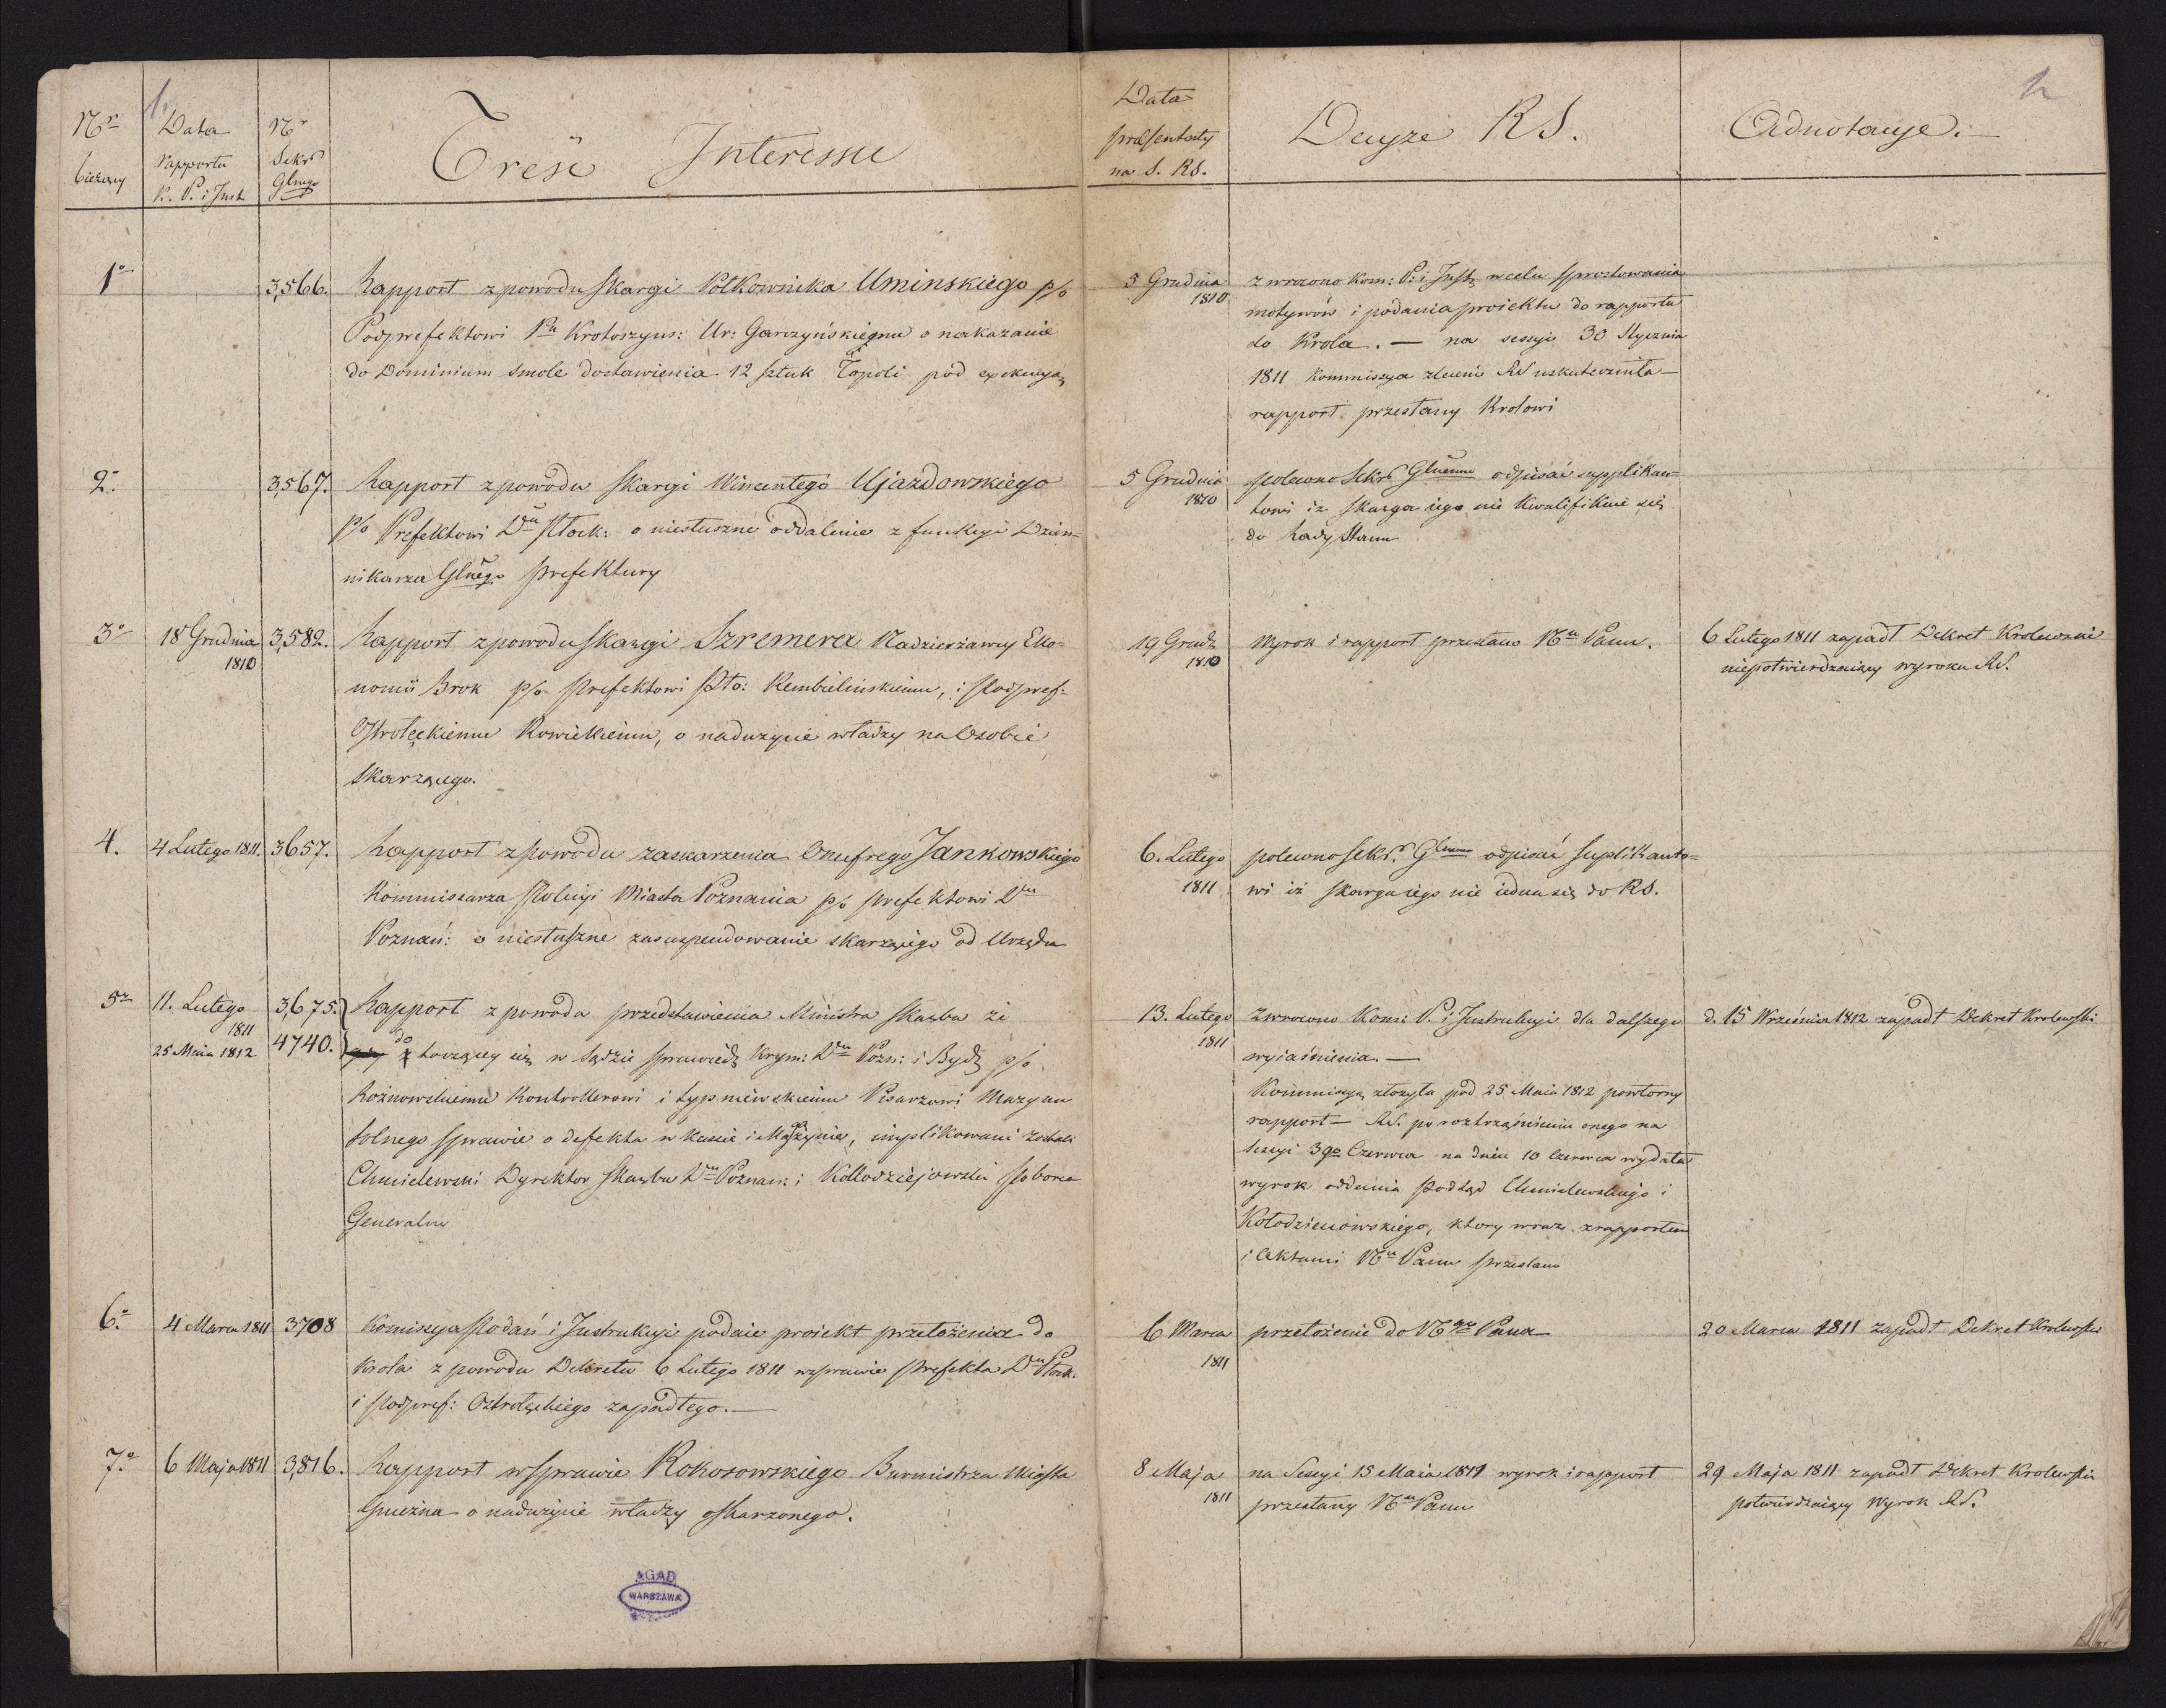 Nr bieżący
Data rapportu K. P. i Inst.
Nr Sekr. Glnego
Treść Interessu
Data praesentaty na S. RS.
Decyzje RS.
Adnotacye.
1o
3,566.
Rapport z powodu skargi Półkownika Uminskiego p/o
Podprefektowi Ptu Krotoszyns: Ur: Garczyńskiemu o nakazanie
do Dominium Smole dostawienia 12 sztuk Topoli pod exekucyą
5 Grudnia
1810
zwrocono Kom: P. i Inst. w celu sprostowania
motywów i podania proiektu do rapportu
do Krola. — na sessyi 30 Stycznia
1811 Kommissya zlecenie RS uskuteczniła —
rapport przesłany Krolowi
2o
3,567.
Rapport z powodu skargi Wincentego Ujazdowskiego
p/o Prefektowi Dtu Płock: o niesłuszne oddalenie z funkcyi Dzien=
nikarza Glnego Prefektury
5 Grudnia
1810
polecono Sekr. Glnemu odpisać supplikan=
towi iż skarga iego nie kwalifikuie się
do Rady Stanu
3o
18 Grudnia
1810
3,582.
Rapport z powodu skargi Szremera Nadzierżawcy Eko=
nomii Brok p/o Prefektowi Pło: Rembielinskiemu, i Podpref:
Ostrołęckiemu Kowickiemu, o nadużycie władzy na Osobie
skarzącego.
19 Grud.
1810
Wyrok i rapport przesłano Nu Panu.
6 Lutego 1811 zapadł Dekret Krolewski
niepotwierdzaiący wyroku RS.
4.
4 Lutego 1811.
3657.
Rapport z powodu zaskarzenia Onufrego Jankowskiego
Kommissarza Policyi Miasta Poznania p/o Prefektowi Dtu
Poznań: o niesłuszne zasuspendowanie skarzącego od Urzędu
6. Lutego
1811
polecono Sekr. Glnemu odpisać suplikanto=
wi iż skarga iego nie iedna się do RS.
5o
11. Lutego
1811
25 Maia 1812
3,675.
4740.
Rapport z powodu przedstawienia Ministra Skarbu że
do toczącey się w Sądzie sprawied. Krym: Dtu Pozn: i Bydg. p/o
Rożnowskiemu Kontrollerowi i Łypniewskiemu Pisarzowi Magazynu
solnego sprawie o defekta w kassie i Magazynie, implikowani zostali
Chmielewski Dyrektor Skarbu Dtu Poznań: i Kollodziejowski Poborca
Generalny
13. Lutego
1811
Zwrocono Kom: P. i Instrukcyi dla dalszego
wyiaśnienia. —
Kommissya złożyła pod 25 Maia 1812 powtorny
rapport — RS. po roztrząśnieniu onego na
Sessyi 3go Czerwca na dniu 10 Czerwca wydała
wyrok oddania pod Sąd Chmielewskiego i
Kołodzieiowskiego, ktory wraz z rapportem
i Aktami Nu Panu przesłano
d. 15 Września 1812 zapadł Dekret Krolewski
6o
4 Marca 1811
3708
Komissya Podań i Instrukcyi podaie proiekt przełożenia do
Krola z powodu Dekretu 6 Lutego 1811 w sprawie Prefekta Dtu Płock.
i Podpref: Ostrołęckiego zapadłego. —
6 Marca
1811
przełożenie do Ngo Pana
20 Marca 1811 zapadł Dekret Krolewski
7o
6 Maja 1811
3,816.
Rapport w sprawie Rokosowskiego Burmistrza Miasta
Gniezna o nadużycie władzy oskarzonego.
8 Maja
1811
na Sessyi 15 Maia 1811 wyrok i rapport
przesłany Nu Panu
29 Maja 1811 zapadł Dekret Krolewski
potwierdzaiący Wyrok RS.
AGAD
WARSZAWA